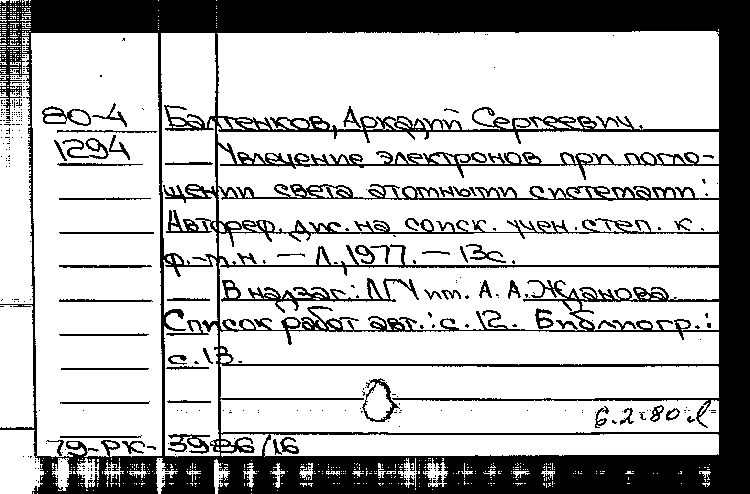 80-4 Балтенков, Аркадий Сергеевич.
1294 Увлечение электронов при погло-
щении света атомными системами:
Автореф. дис. на соиск. учен. степ. к.
ф.-м.н. — Л., 1977. — 13с.
В надзаг.: ЛГУ им. А. А. Жданова.
Список работ авт.: с. 12. Библиогр.:
с. 13.
6.2.80
79-РК- 3986/16